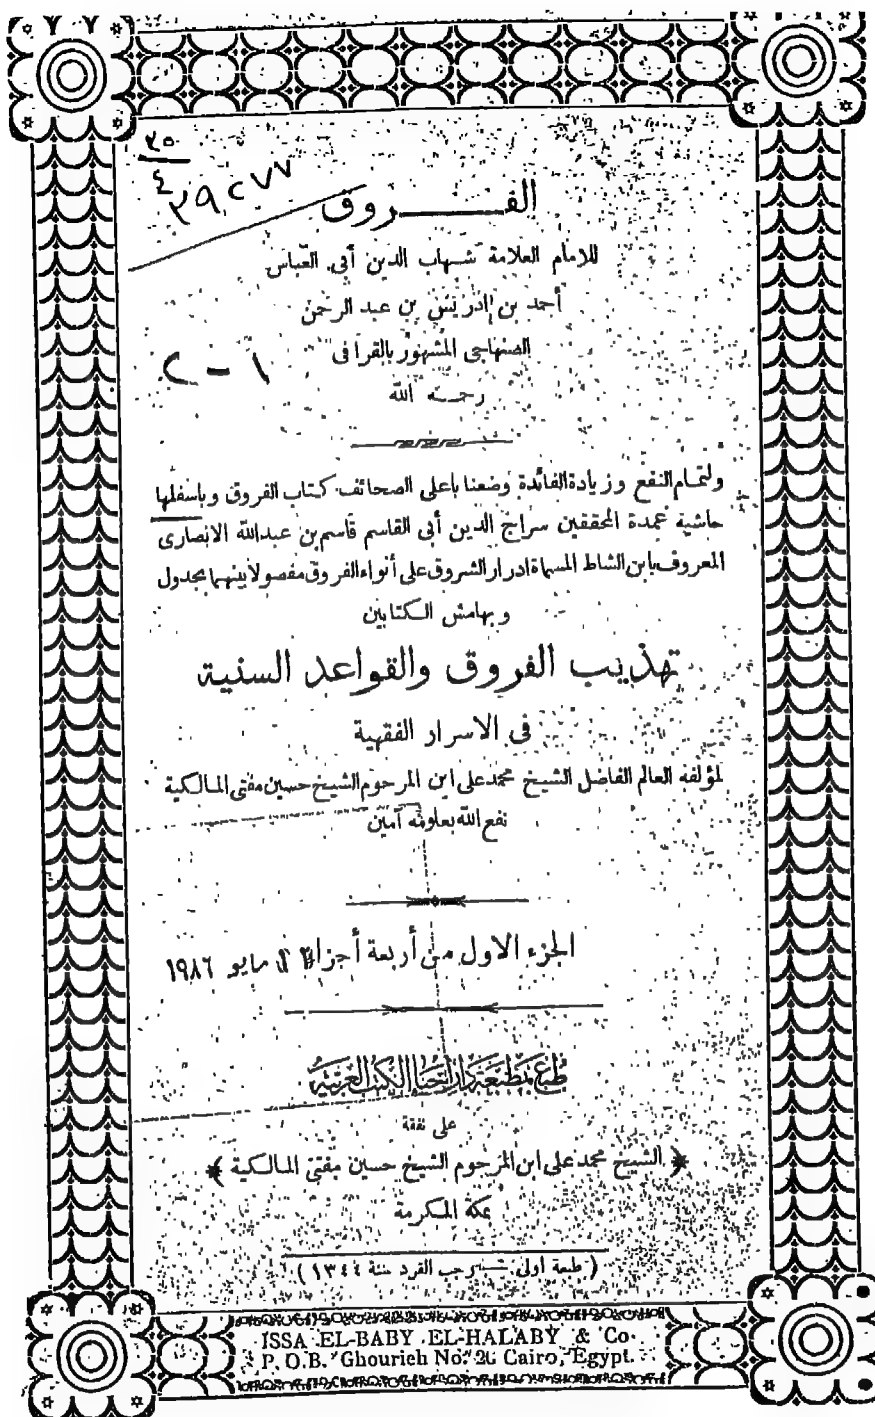 ٢٥
٤
٣٩٢٧٧
الفـــــروق
للامام العلامة شهاب الدين أبى العباس
أحمد بن إدريس بن عبد الرحمن
الصنهاجى المشهور بالقرافى
رحمـه الله
١ - ٢
ولتمام النفع وزيادة الفائدة وضعنا باعلى الصحائف كتاب الفروق وباسفلها
حاشية عمدة المحققين سراج الدين أبى القاسم قاسم بن عبدالله الانصارى
المعروف بابن الشاط المسماة ادرار الشروق على أنواء الفروق مفصولا بينهما بجدول
وبهامش الكتابين
تهذيب الفروق والقواعد السنية
فى الاسرار الفقهية
لمؤلفه العالم الفاضل الشيخ محمد على ابن المرحوم الشيخ حسين مفتى المالكية
نفع الله بعلومه آمين
الجزء الاول من أربعة أجزاء مايو ١٩٨٦
طبع بمطبعة دار احياء الكتب العربية
على نفقة
﴿ الشيخ محمد على ابن المرحوم الشيخ حسين مفتى المالكية ﴾
بمكة المكرمة
( طبعة أولى — رجب الفرد سنة ١٣٤٤ )
ISSA EL-BABY EL-HALABY & Co.
P. O. B. Ghourieh No. 26 Cairo, Egypt.